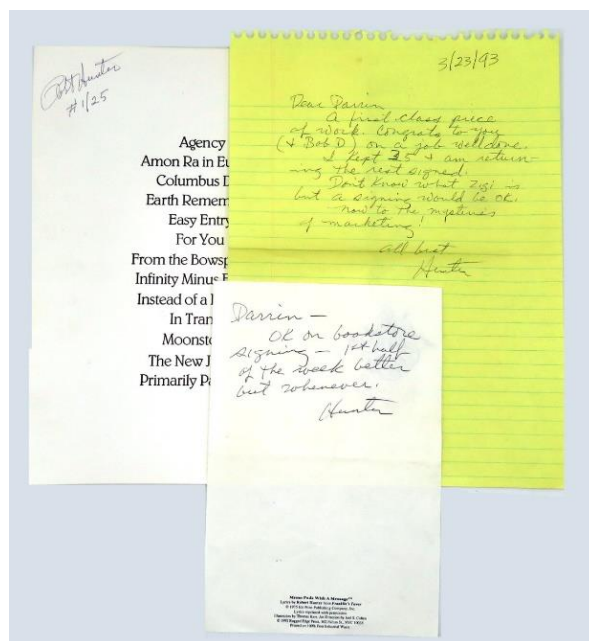 Robt Hunter
#1/25
Agency
Amon Ra in Eu
Columbus D
Earth Remem
Easy Entry
For You
From the Bowsp
Infinity Minus E
Instead of a
In Tran
Moonsto
The New J
Primarily Pa
3/23/93
Dear Darrin
A first class piece
of work. Congrats to you
(+ Bob D) on a job well done.
I kept 25 + am return-
ing the rest signed.
Don't know what Zigi is
but a signing would be OK.
now to the mysteries
of marketing!
all best
Hunter
Darrin –
OK on bookstore
signing – 1st half
of the week better
but whenever.
Hunter
Memo Pads With A Message™
Lyrics by Robert Hunter from Franklin's Tower